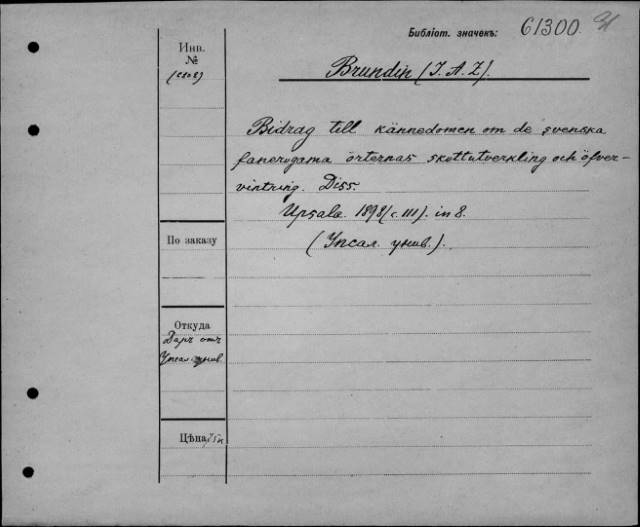 Библіот. значекъ: 61300.
Инв.
№
Brundin (J. A. Z.).
Bidrag till kännedomen om de svenska
fanerogama örternas skottutveckling och öfver-
vintring. Diss.
Upsala. 1898 (c. III). in 8.
По заказу
(Упсал. унив.).
Откуда
Даръ отъ
Упсал. унив.
Цѣна